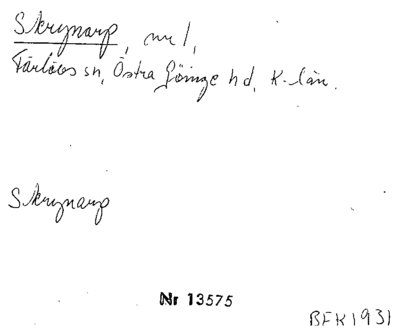 Skrynarp, nr 1,
Färlövs sn, Östra Göinge hd, K-län.
Skrynarp
Nr 13575
BEK 1931